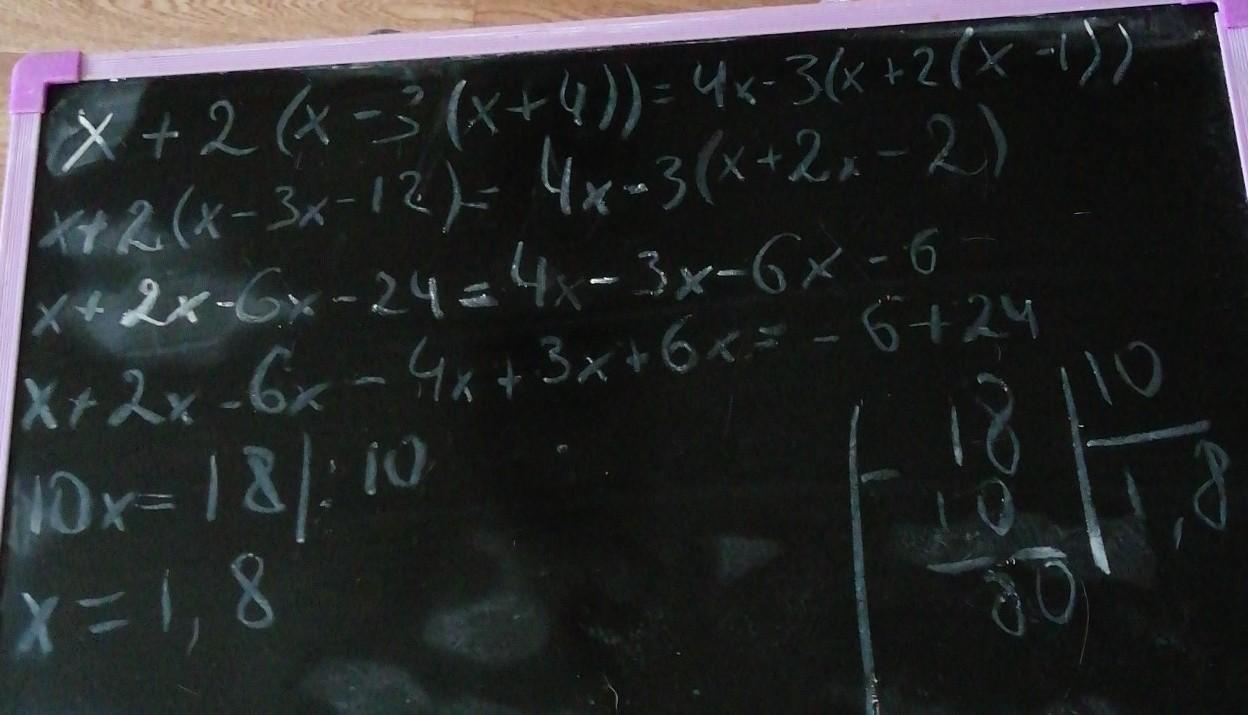 x + 2 (x - 3 (x + 4)) = 4x - 3(x + 2(x - 1))
x + 2(x - 3x - 12) = 4x - 3(x + 2x - 2)
x + 2x - 6x - 24 = 4x - 3x - 6x - 6
x + 2x - 6x - 4x + 3x + 6x = - 6 + 24
10x = 18 | : 10
x = 1,8
- 18 | 10
10 | 1,8
80